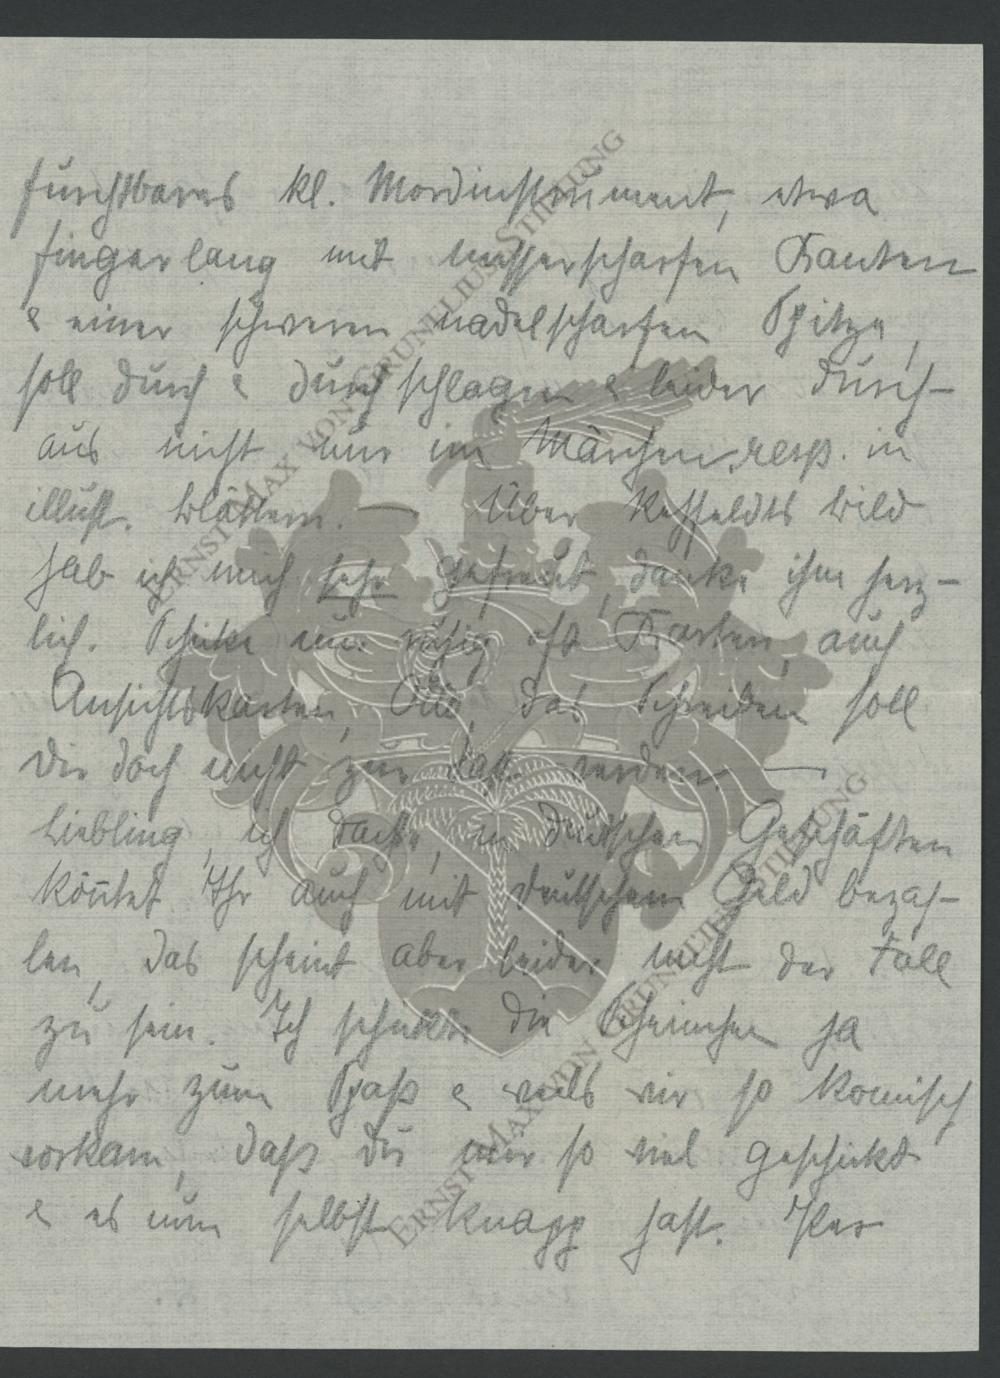 furchtbares kl. Mordinstrument, etwa
fingerlang mit messerscharfen Kanten
& einer schweren nadelscharfen Spitze,
soll durch & durch schlagen & leider durch-
aus nicht nur im Märchen resp. in
illust. Blättern. Über Bild
hab ich mich sehr gefreut, danke ihm herz-
lich. Schicke nur ruhig oft Karten, auch
Ansichtskarten, das Schreiben soll
Dir doch nicht zur Last werden. —
Liebling, ich dachte, in deutschen Geschäften
könntet Ihr auch mit deutschem Geld bezah-
len, das scheint aber leider nicht der Fall
zu sein. Ich schickte die Scheinchen ja
mehr zum Spaß & weils mir so komisch
vorkam, daß Du mir so viel geschickt
& es nun selbst knapp hast.
ERNST MAX VON GRUNELIUS STIFTUNG
ERNST MAX VON GRUNELIUS STIFTUNG